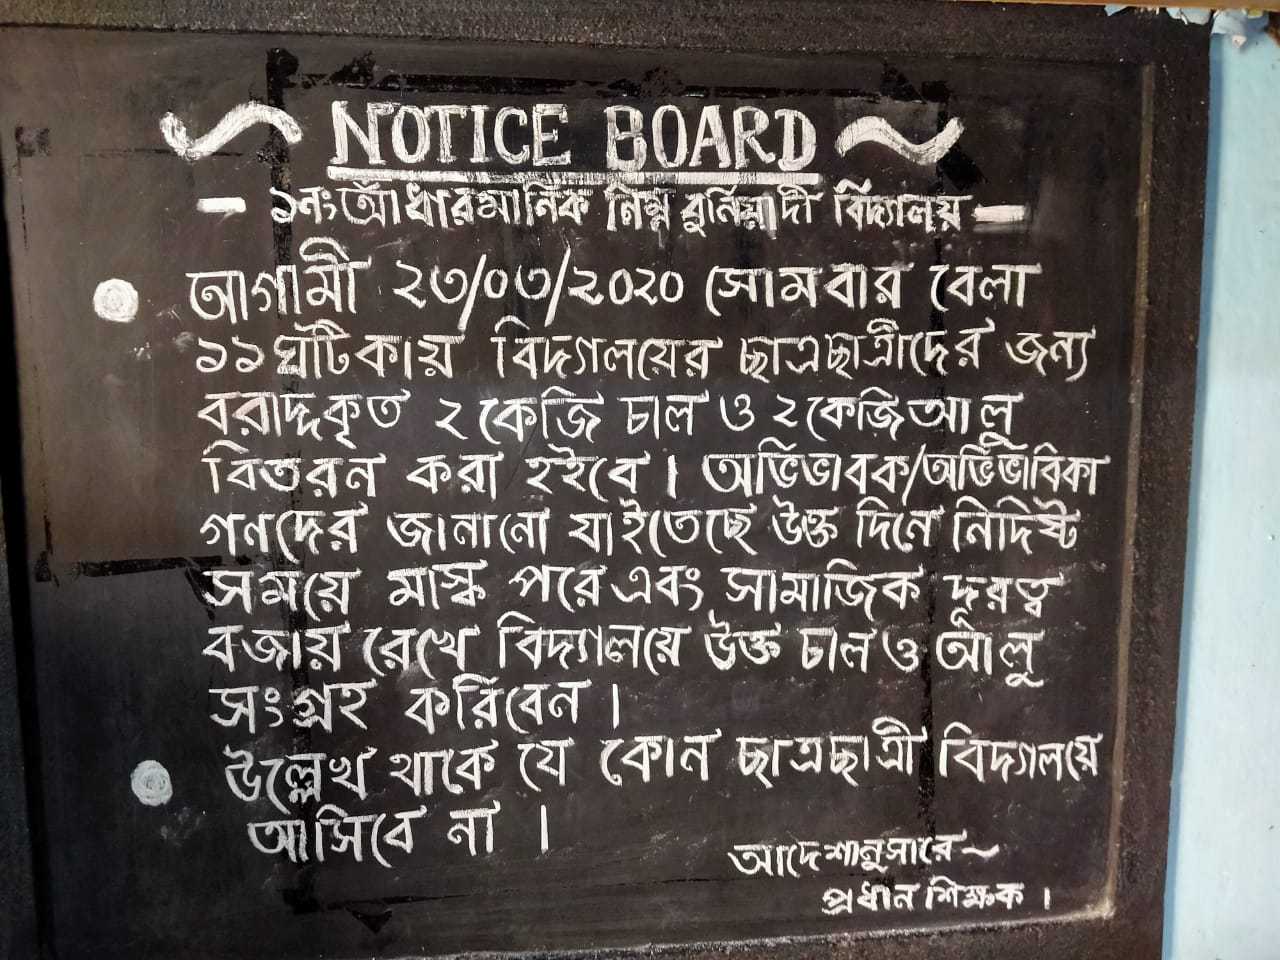 NOTICE BOARD
১নং আঁধারমানিক নিম্ন বুনিয়াদী বিদ্যালয়
আগামী ২৩/০৩/২০২০ সোমবার বেলা
১১ ঘটিকায় বিদ্যালয়ের ছাত্রছাত্রীদের জন্য
বরাদ্দকৃত ২ কেজি চাল ও ২ কেজি আলু
বিতরন করা হইবে। অভিভাবক/অভিভাবিকা
গণদের জানানো যাইতেছে উক্ত দিনে নির্দিষ্ট
সময়ে মাস্ক পরে এবং সামাজিক দূরত্ব
বজায় রেখে বিদ্যালয়ে উক্ত চাল ও আলু
সংগ্রহ করিবেন।
উল্লেখ থাকে যে কোন ছাত্রছাত্রী বিদ্যালয়ে
আসিবে না।
আদেশানুসারে~
প্রধান শিক্ষক।